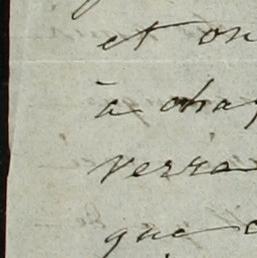 et on
à chaq
verra
que c